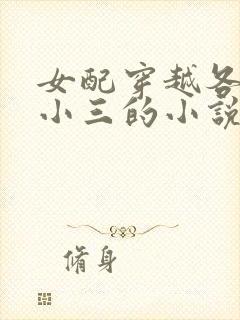 女配穿越各
小三的小說
脩身